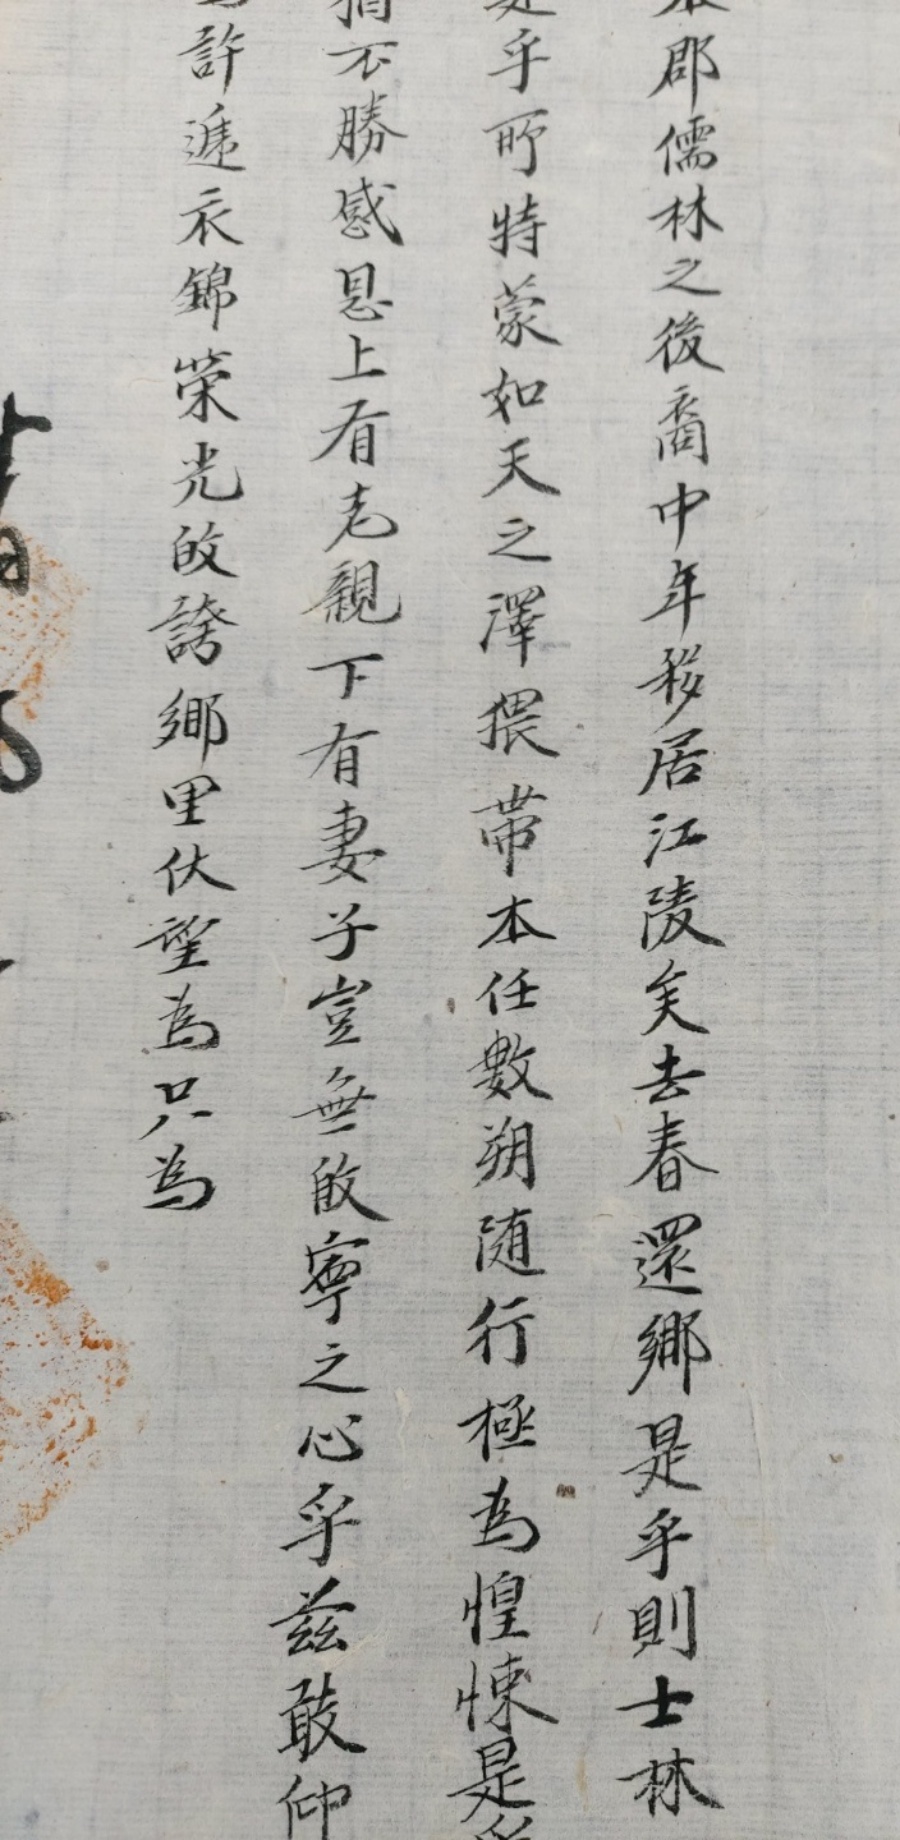 本郡儒林之後裔中年移居江陵矣去春還鄉是乎則士林
是乎所特蒙如天之澤猥帶本任數朔随行極為惶悚是乎
猶不勝感恩上有老親下有妻子豈無啟寧之心乎玆敢仰
許遞衣錦榮光皎誇鄉里伏望為只為